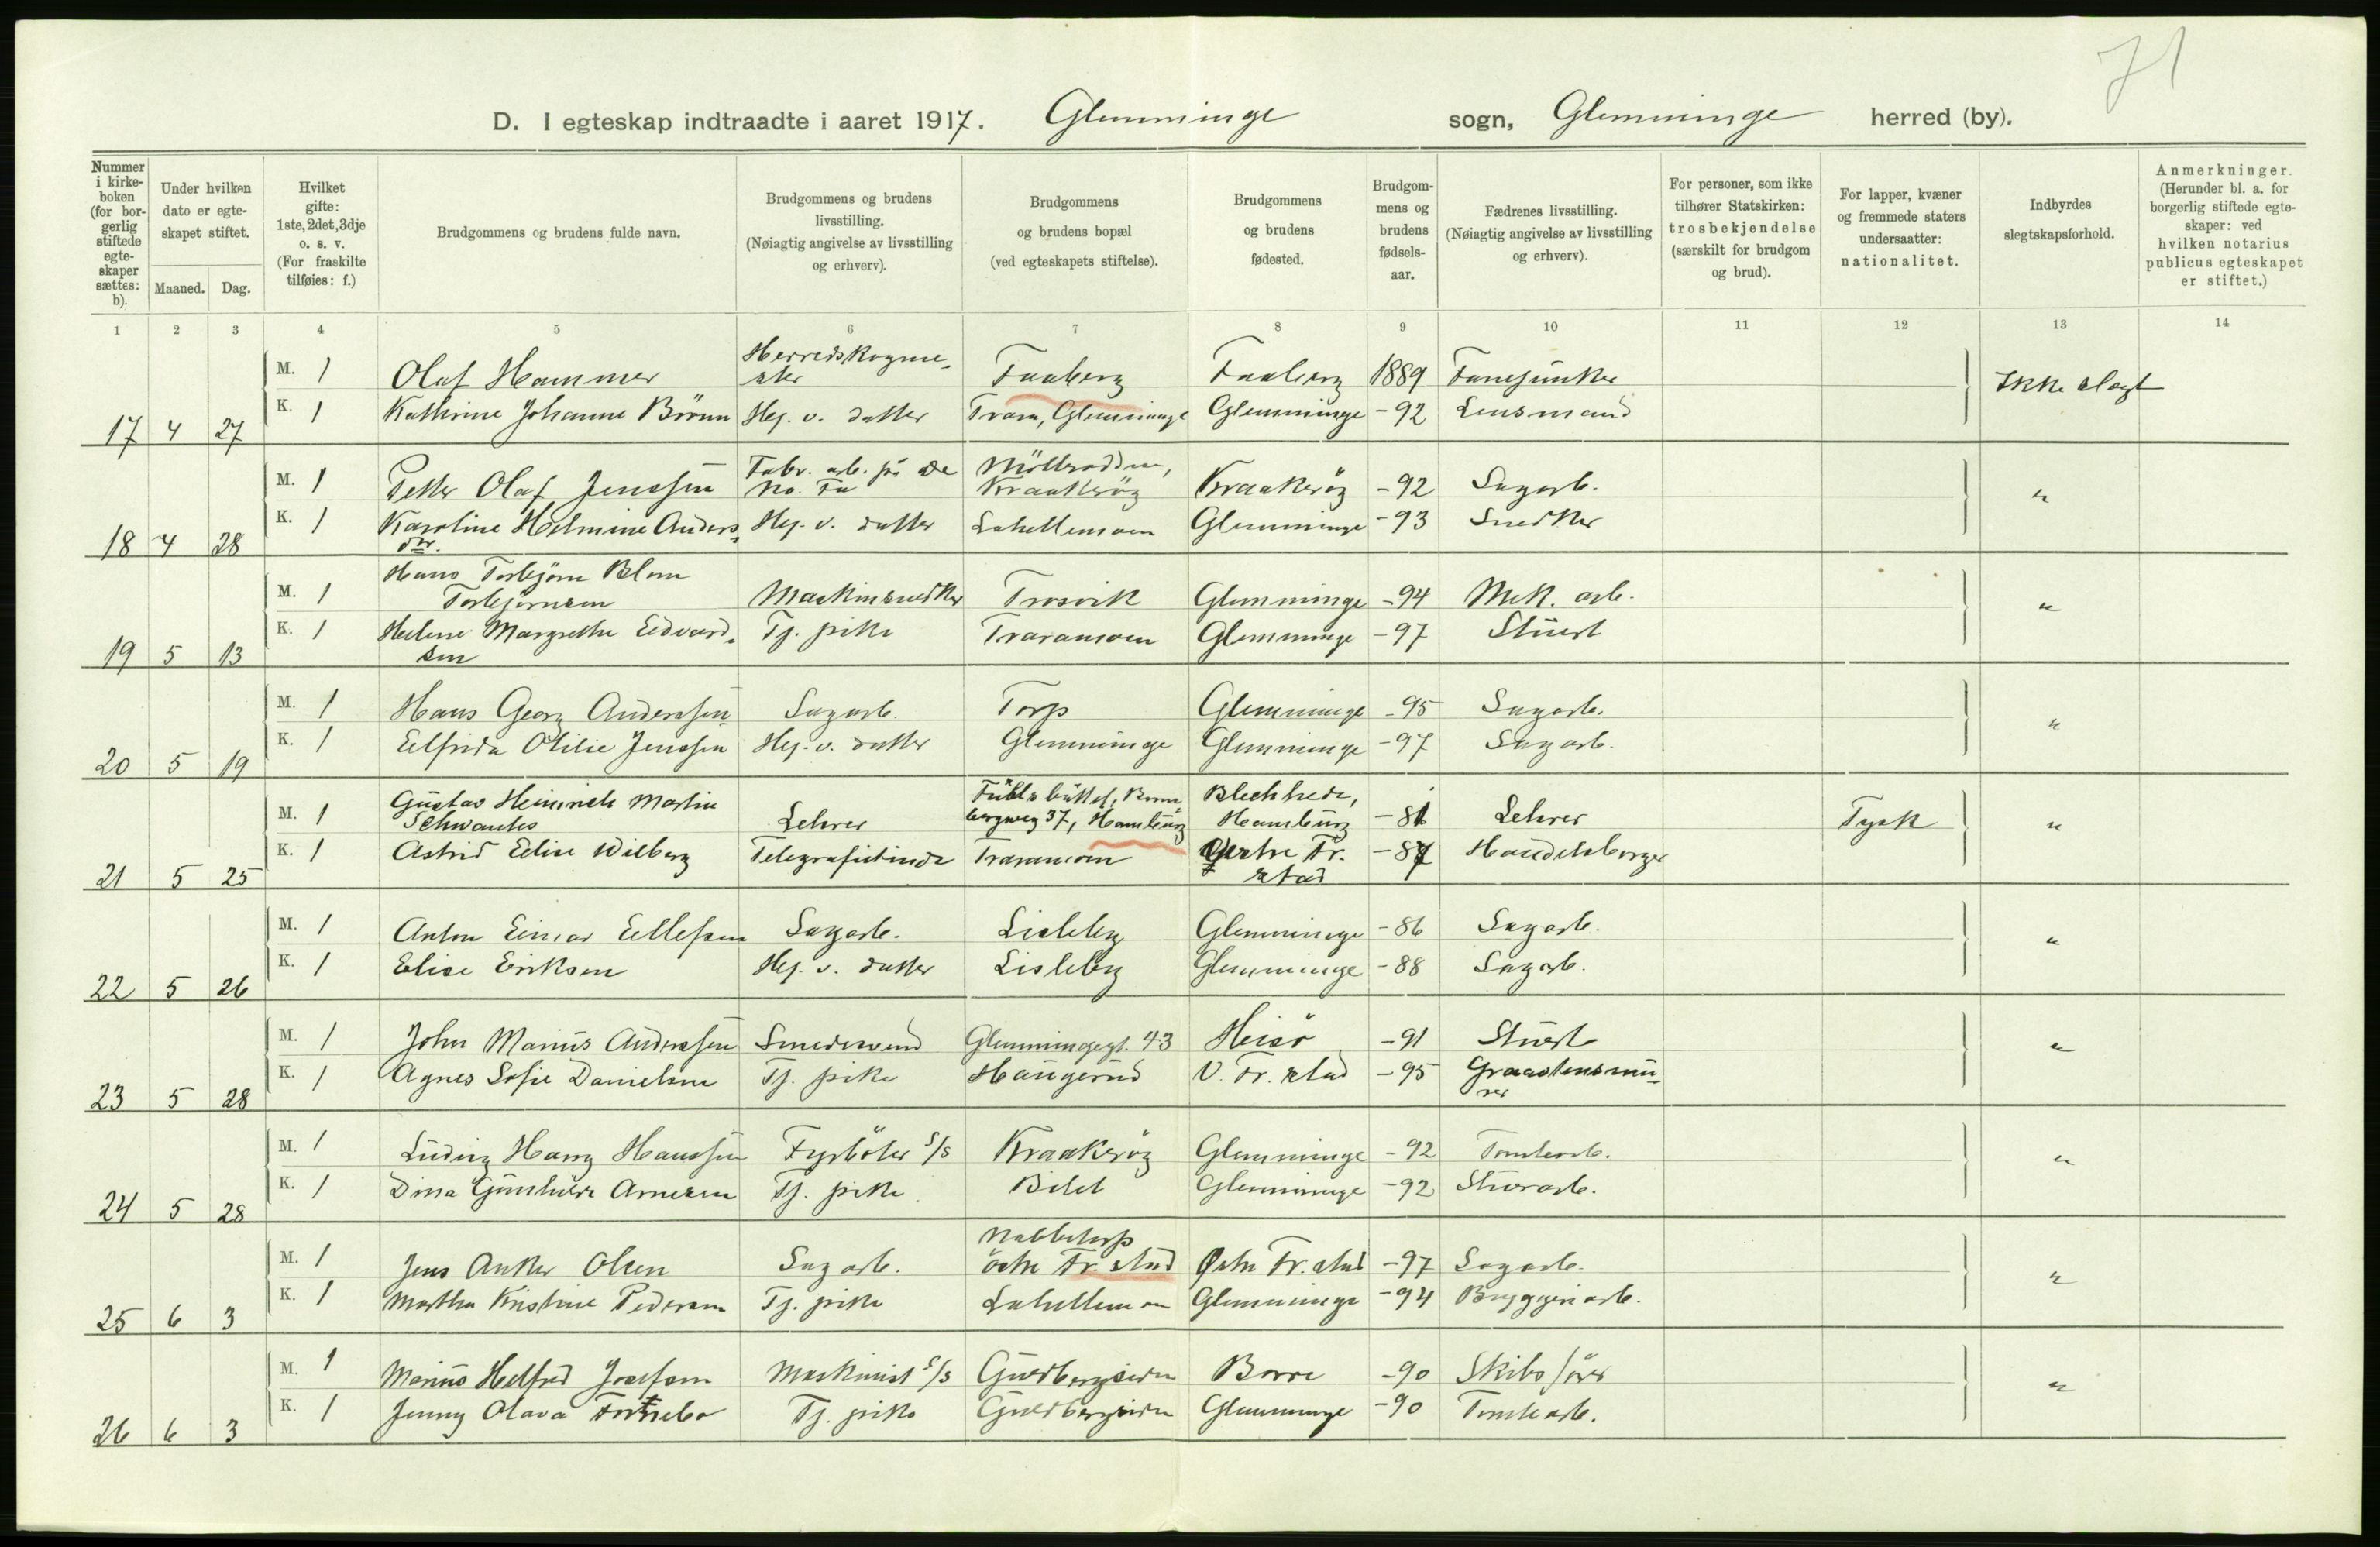 71
D. I egteskap indtraadte i aaret 1917. Glemminge sogn, Glemminge herred (by).
Nummer i kirkeboken (for borgerlig stiftede egteskaper sættes: b).
Under hvilken dato er egteskapet stiftet.
Maaned. Dag.
Hvilket gifte: 1ste, 2det, 3dje o. s. v. (For fraskilte tilføies: f.)
Brudgommens og brudens fulde navn.
Brudgommens og brudens livsstilling. (Nøiagtig angivelse av livsstilling og erhverv).
Brudgommens og brudens bopæl (ved egteskapets stiftelse).
Brudgommens og brudens fødested.
Brudgommens og brudens fødselsaar.
Fædrenes livsstilling. (Nøiagtig angivelse av livsstilling og erhverv).
For personer, som ikke tilhører Statskirken: trosbekjendelse (særskilt for brudgom og brud).
For lapper, kvæner og fremmede staters undersaatter: nationalitet.
Indbyrdes slegtskapsforhold.
Anmerkninger. (Herunder bl. a. for borgerlig stiftede egteskaper: ved hvilken notarius publicus egteskapet er stiftet.)
1 2 3 4 5 6 7 8 9 10 11 12 13 14
M. 1 Olaf Hammer Herredskogmester Faaberg Faaberg 1889 Fanejunker Ikke slegt
17 4 27 K. 1 Kathrine Johanne Börum Hj. v. datter Trara, Glemminge Glemminge -92 Lensmand
M. 1 Petter Olaf Jenssen Fabr. arb. på De No. Fa Möllerodden, Kraakeröy Kraakeröy -92 Sagarb. "
18 4 28 K. 1 Karoline Helmine Andersdtr. Hj. v. datter Lahellemoen Glemminge -93 Snedker
M. 1 Hans Torbjörn Blom Torbjörnsen Maskinsnedker Trosvik Glemminge -94 Mek. arb. "
19 5 13 K. 1 Helene Margrethe Edvardsen Tj. pike Traramoen Glemminge -97 Stuert
M. 1 Hans Georg Anderssen Sagarb. Torp Glemminge -95 Sagarb. "
20 5 19 K. 1 Elfrida Otilie Jenssen Hj. v. datter Glemminge Glemminge -97 Sagarb.
M. 1 Gustav Heinrich Martin Schwantes Lehrer Fuhlsbüttel, Bornbergweg 37, Hamburg Bleckhede, Hamburg -81 Lehrer Tysk "
21 5 25 K. 1 Astrid Elise Wilberg Telegrafistinde Traramoen Østre Fr.stad -87 Handelsborger
M. 1 Anton Einar Ellefsen Sagarb. Lisleby Glemminge -86 Sagarb. "
22 5 26 K. 1 Elise Eriksen Hj. v. datter Lisleby Glemminge -88 Sagarb.
M. 1 John Marius Anderssen Smedsvend Glemmingegt. 43 Heisö -91 Stuert "
23 5 28 K. 1 Agnes Sofie Danielsen Tj. pike Haugerud V. Fr. stad -95 Graastensmurer
M. 1 Ludvig Harry Hanssen Fyrböter S/S Kraakeröy Glemminge -92 Tomtearb. "
24 5 28 K. 1 Dina Gunhilda Arnesen Tj. pike Bilet Glemminge -92 Stuerarb.
M. 1 Jens Anker Olsen Sagarb. Nabbetorp östre Fr. stad Östre Fr. stad -97 Sagarb. "
25 6 3 K. 1 Martha Kristine Pedersen Tj. pike Lahellemoen Glemminge -94 Bryggeriarb.
M. 1 Marius Helfred Josefsen Maskinist S/S Guldbergsiden Borre -90 Skibsförer "
26 6 3 K. 1 Jenny Olava Tj. pike Guldbergsiden Glemminge -90 Tomtearb.